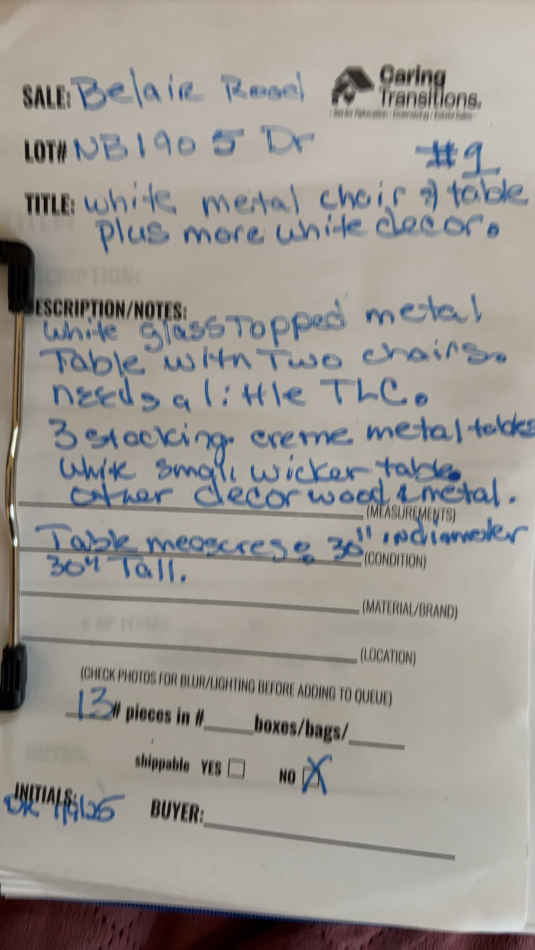 SALE: Belair Road
Caring
Transitions.
LOT# NB1905 Dr
#1
TITLE: white mertal chair & table
plus more white decor.
ESCRIPTION/NOTES:
White glass Topped metal
Table with Two chairs.
needs a little TLC.
3 stacking creme metal tables
White small wicker table.
other decor wood & metal.
(MEASUREMENTS)
Table meascres: 30" indiameter
(CONDITION)
30" Tall.
(MATERIAL/BRAND)
(LOCATION)
(CHECK PHOTOS FOR BLUR/LIGHTING BEFORE ADDING TO QUEUE)
13 # pieces in # boxes/bags/
shippable YES NO X
INITIALS:
BUYER: